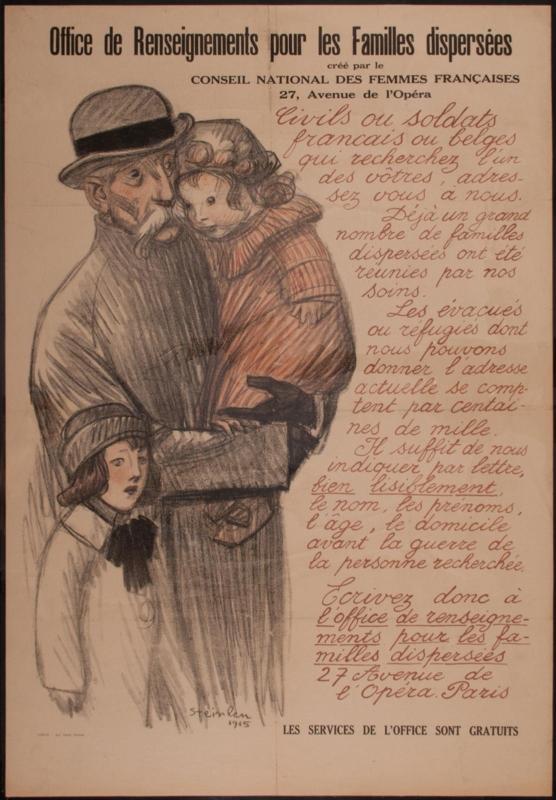 Office de Renseignements pour les Familles dispersées
créé par le
CONSEIL NATIONAL DES FEMMES FRANÇAISES
27, Avenue de l'Opéra
Civils ou soldats
francais ou belges
qui recherchez l'un
des vôtres, adres-
sez vous à nous.
Déjà un grand
nombre de familles
dispersées ont été
réunies par nos
soins.
Les évacués
ou réfugiés dont
nous pouvons
donner l'adresse
actuelle se comp-
tent par centai-
nes de mille.
Il suffit de nous
indiquer par lettre,
bien lisiblement,
le nom, les prénoms,
l'âge, le domicile
avant la guerre de
la personne recherchée.
Ecrivez donc à
l'office de renseigne-
ments pour les fa-
milles dispersées
27 Avenue de
l'Opéra. Paris
Steinlen
1915
LES SERVICES DE L'OFFICE SONT GRATUITS